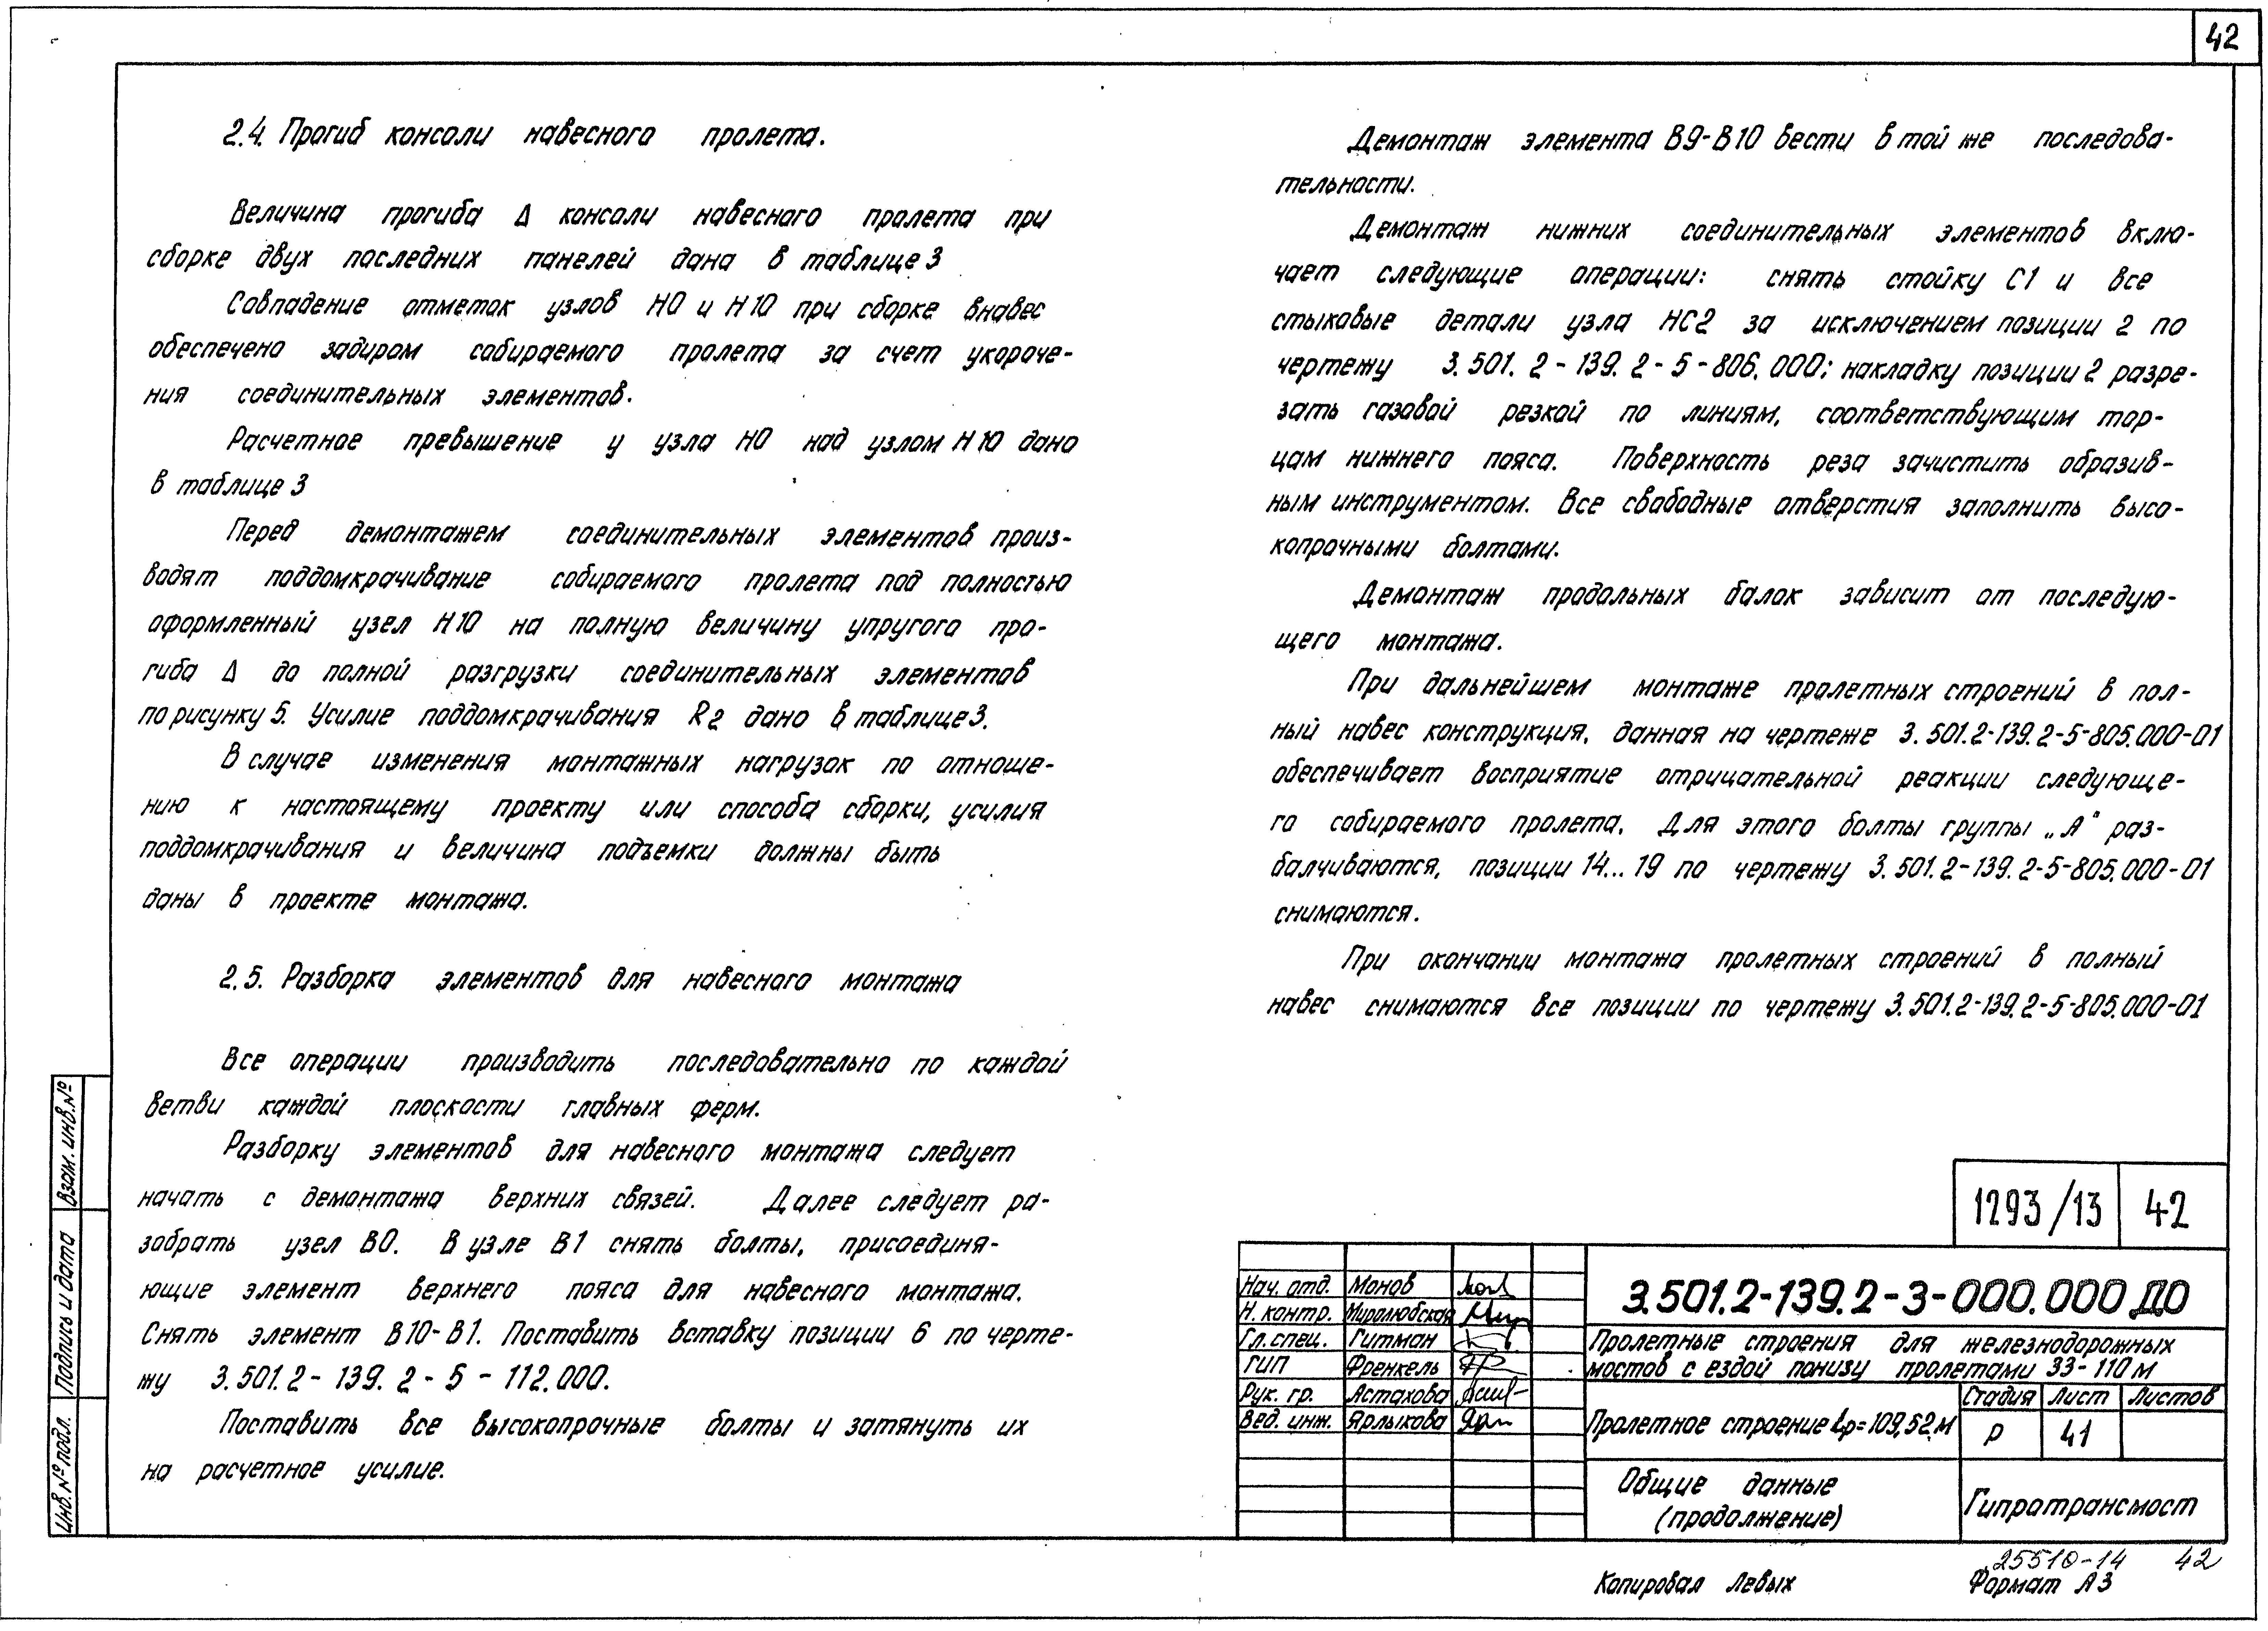 42
2.4. Прогиб консоли навесного пролета.
Величина прогиба Δ консоли навесного пролета при
сборке двух последних панелей дана в таблице 3
Совпадение отметок узлов Н0 и Н10 при сборке внавес
обеспечено задиром собираемого пролета за счет укороче-
ния соединительных элементов.
Расчетное превышение у узла Н0 над узлом Н10 дано
в таблице 3
Перед демонтажем соединительных элементов произ-
водят поддомкрачивание собираемого пролета под полностью
оформленный узел Н10 на полную величину упругого про-
гиба Δ до полной разгрузки соединительных элементов
по рисунку 5. Усилие поддомкрачивания R2 дано в таблице 3.
В случае изменения монтажных нагрузок по отноше-
нию к настоящему проекту или способа сборки, усилия
поддомкрачивания и величина подъемки должны быть
даны в проекте монтажа.
2.5. Разборка элементов для навесного монтажа
Все операции производить последовательно по каждой
ветви каждой плоскости главных ферм.
Разборку элементов для навесного монтажа следует
начать с демонтажа верхних связей. Далее следует ра-
зобрать узел В0. В узле В1 снять болты, присоединя-
ющие элемент верхнего пояса для навесного монтажа.
Снять элемент В10-В1. Поставить вставку позиции 6 по черте-
жу 3.501.2-139.2-5-112.000.
Поставить все высокопрочные болты и затянуть их
на расчетное усилие.
Демонтаж элемента В9-В10 вести в той же последова-
тельности.
Демонтаж нижних соединительных элементов вклю-
чает следующие операции: снять стойку С1 и все
стыковые детали узла НС2 за исключением позиции 2 по
чертежу 3.501.2-139.2-5-806.000; накладку позиции 2 разре-
зать газовой резкой по линиям, соответствующим тор-
цам нижнего пояса. Поверхность реза зачистить образив-
ным инструментом. Все свободные отверстия заполнить высо-
копрочными болтами.
Демонтаж продольных балок зависит от последую-
щего монтажа.
При дальнейшем монтаже пролетных строений в пол-
ный навес конструкция, данная на чертеже 3.501.2-139.2-5-805.000-01
обеспечивает восприятие отрицательной реакции следующе-
го собираемого пролета. Для этого болты группы „А" раз-
балчиваются, позиции 14...19 по чертежу 3.501.2-139.2-5-805.000-01
снимаются.
При окончании монтажа пролетных строений в полный
навес снимаются все позиции по чертежу 3.501.2-139.2-5-805.000-01
Взам. инв. №
Подпись и дата
Инв. № подл.
1293/13 42
Нач. отд. Монов
Н. контр. Миролюбская
Гл. спец. Гитман
ГИП Френкель
Рук. гр. Астахова
Вед. инж. Ярлыкова
3.501.2-139.2-3-000.000 ДО
Пролетные строения для железнодорожных
мостов с ездой понизу пролетами 33-110 м
Пролетное строение Lр=109,52 м
Стадия Лист Листов
Р 41
Общие данные
(продолжение)
Гипротрансмост
25510-14 42
Копировал Левых Формат А3